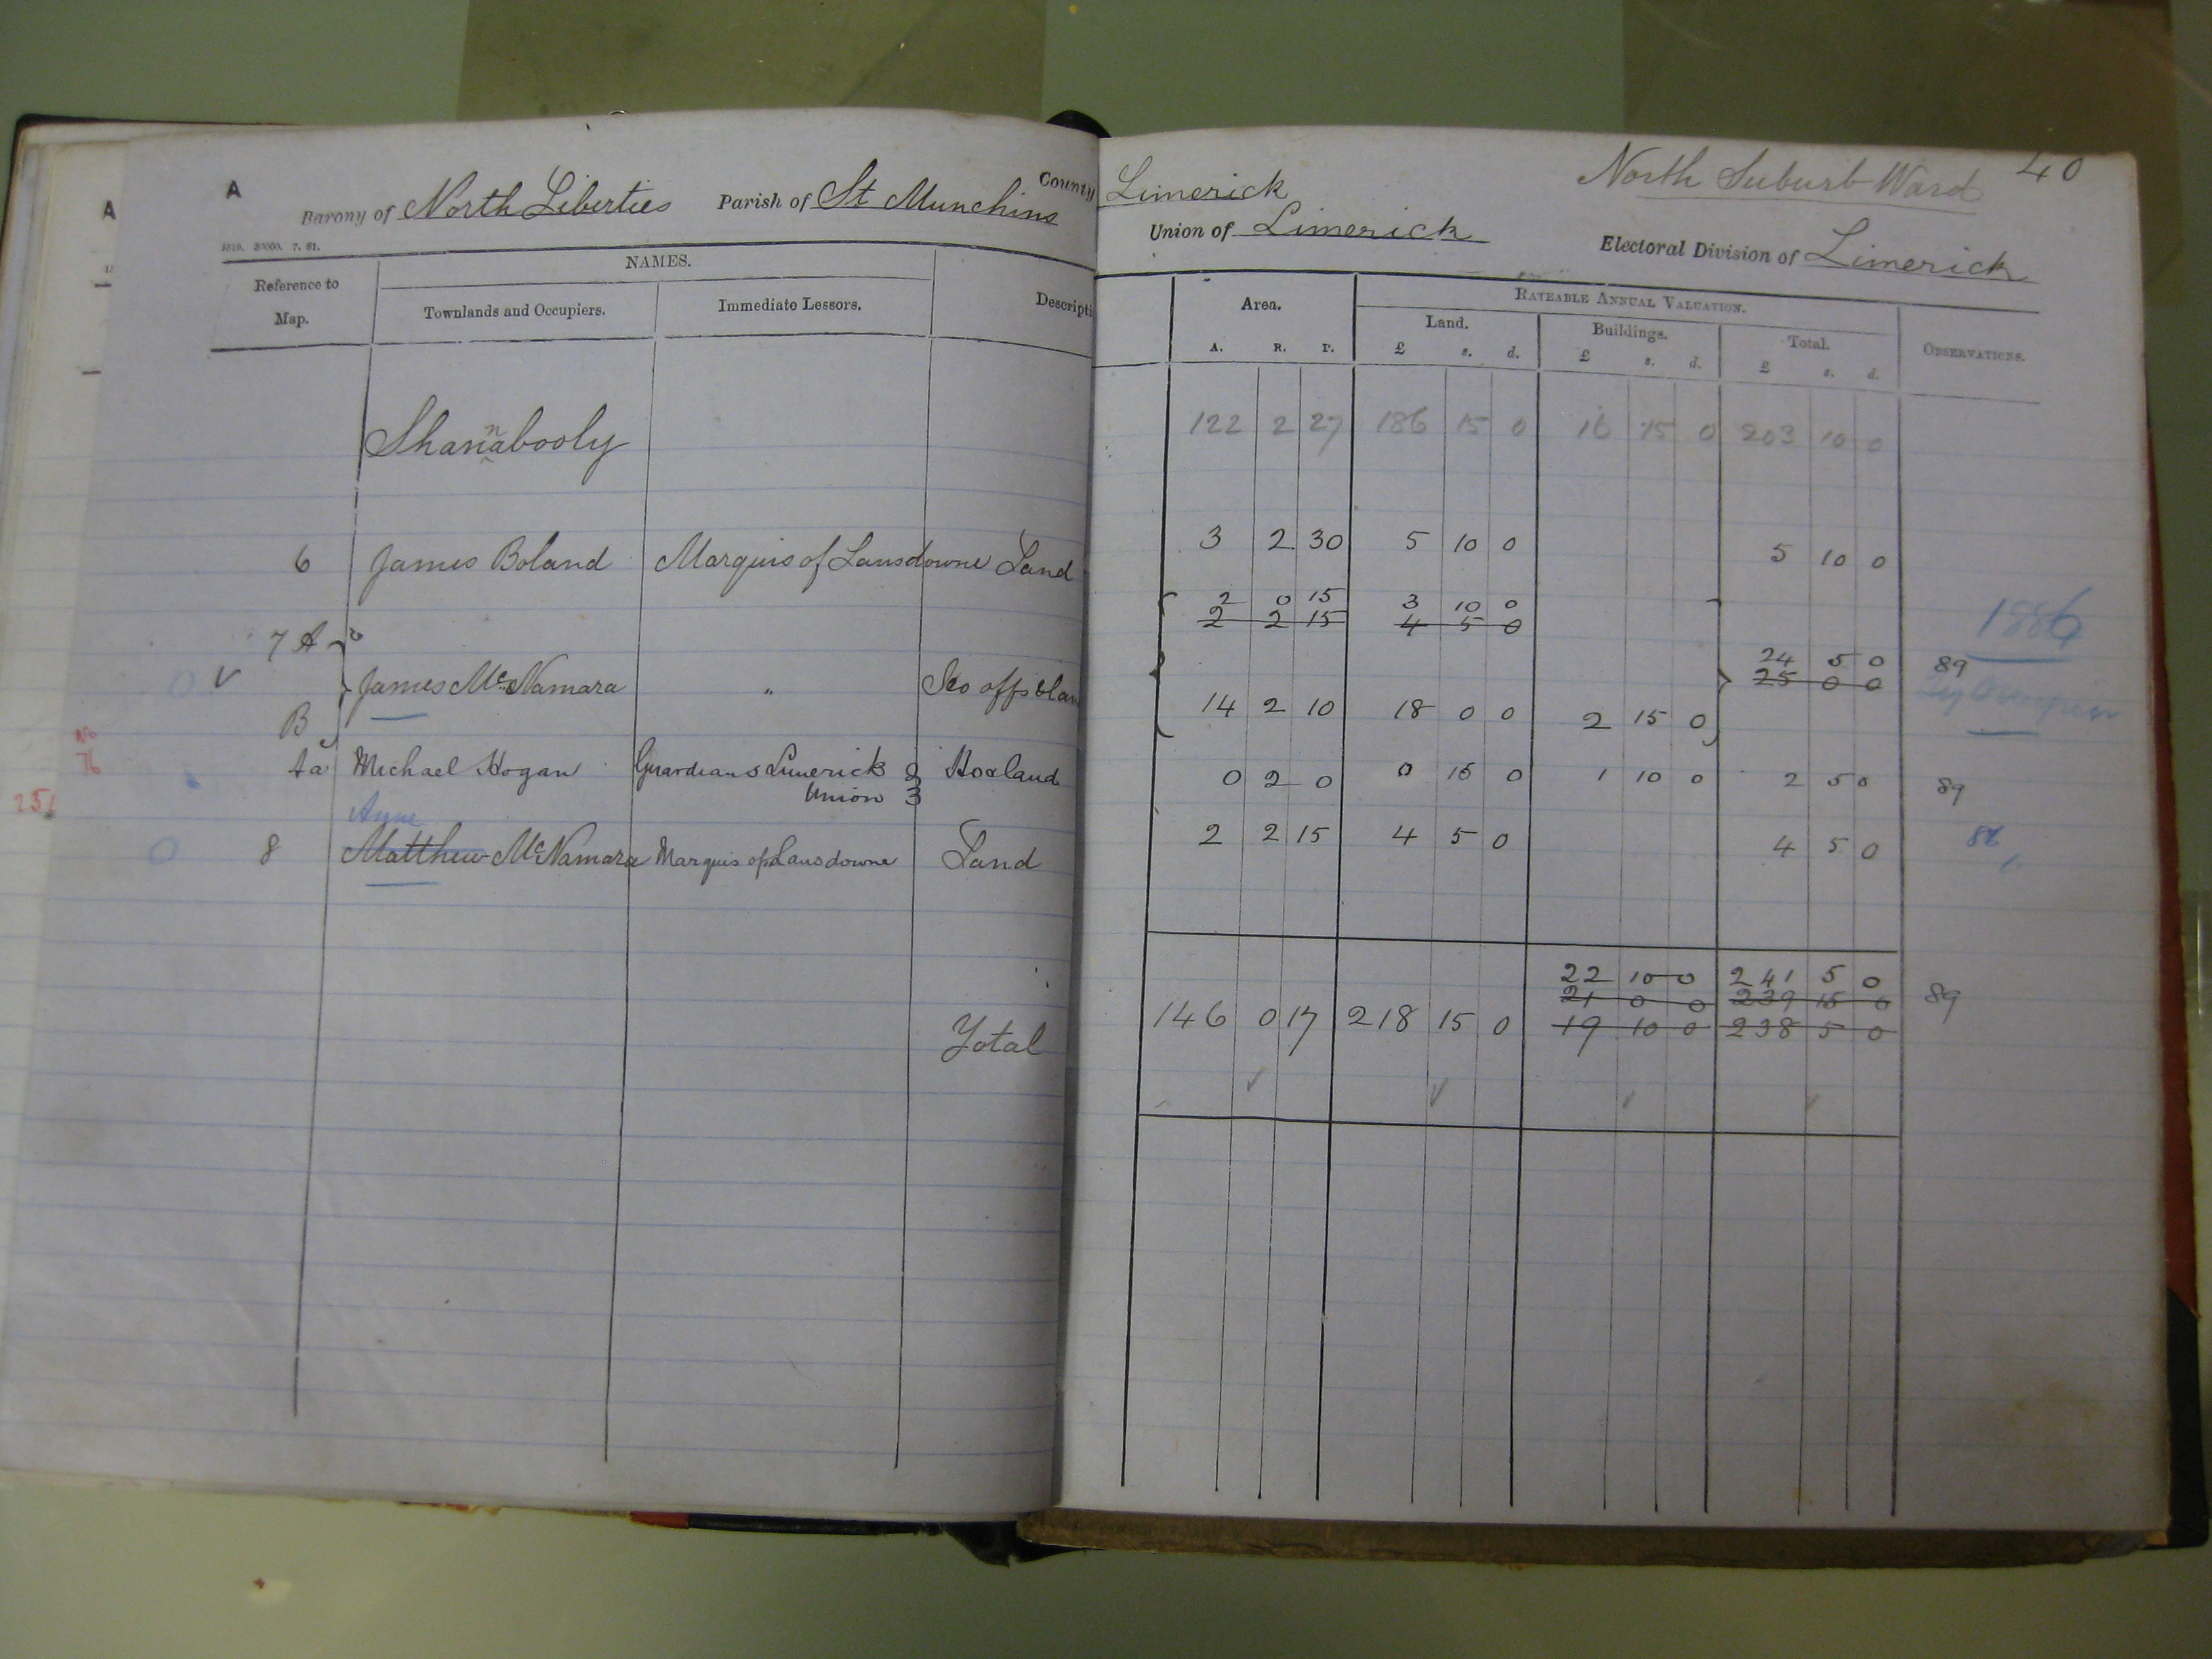 A
A
Barony of North Liberties Parish of St Munchins County Limerick
North Suburb Ward 40
Union of Limerick Electoral Division of Limerick
Reference to Map. NAMES. Townlands and Occupiers. Immediate Lessors. Descripti
Area. A. R. P. RATEABLE ANNUAL VALUATION. Land. £ s. d. Buildings. £ s. d. Total. £ s. d. OBSERVATIONS.
Shannabooly 122 2 27 186 15 0 16 15 0 203 10 0
6 James Boland Marquis of Lansdowne Land 3 2 30 5 10 0 5 10 0
2 0 15 3 10 0 1886
7 A 2 2 15 4 5 0
24 5 0 89
James McNamara " 25 0 0
B 14 2 10 18 0 0 2 15 0
76
Aa Michael Hogan Guardians Limerick Union Ho & land 0 2 0 0 15 0 1 10 0 2 5 0 89
8 Matthew McNamara Marquis of Lansdowne Land 2 2 15 4 5 0 4 5 0 86
22 10 0 241 5 0 89
21 0 0 239 15 0
Total 146 0 17 218 15 0 19 10 0 238 5 0